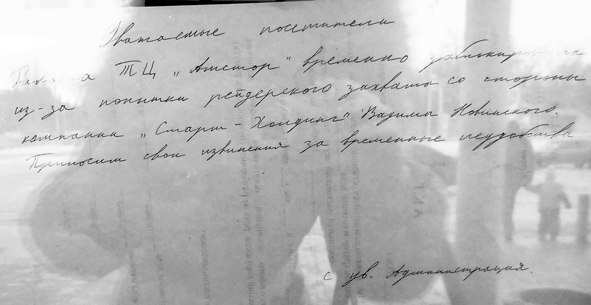 Уважаемые посетители
ТЦ „Амстор" временно
из-за попытки рейдерского захвата со стороны
компании „Смарт-Холдинг" Вадима Новинского.
Приносим свои извинения за временные неудобства
с ув. Администрация.